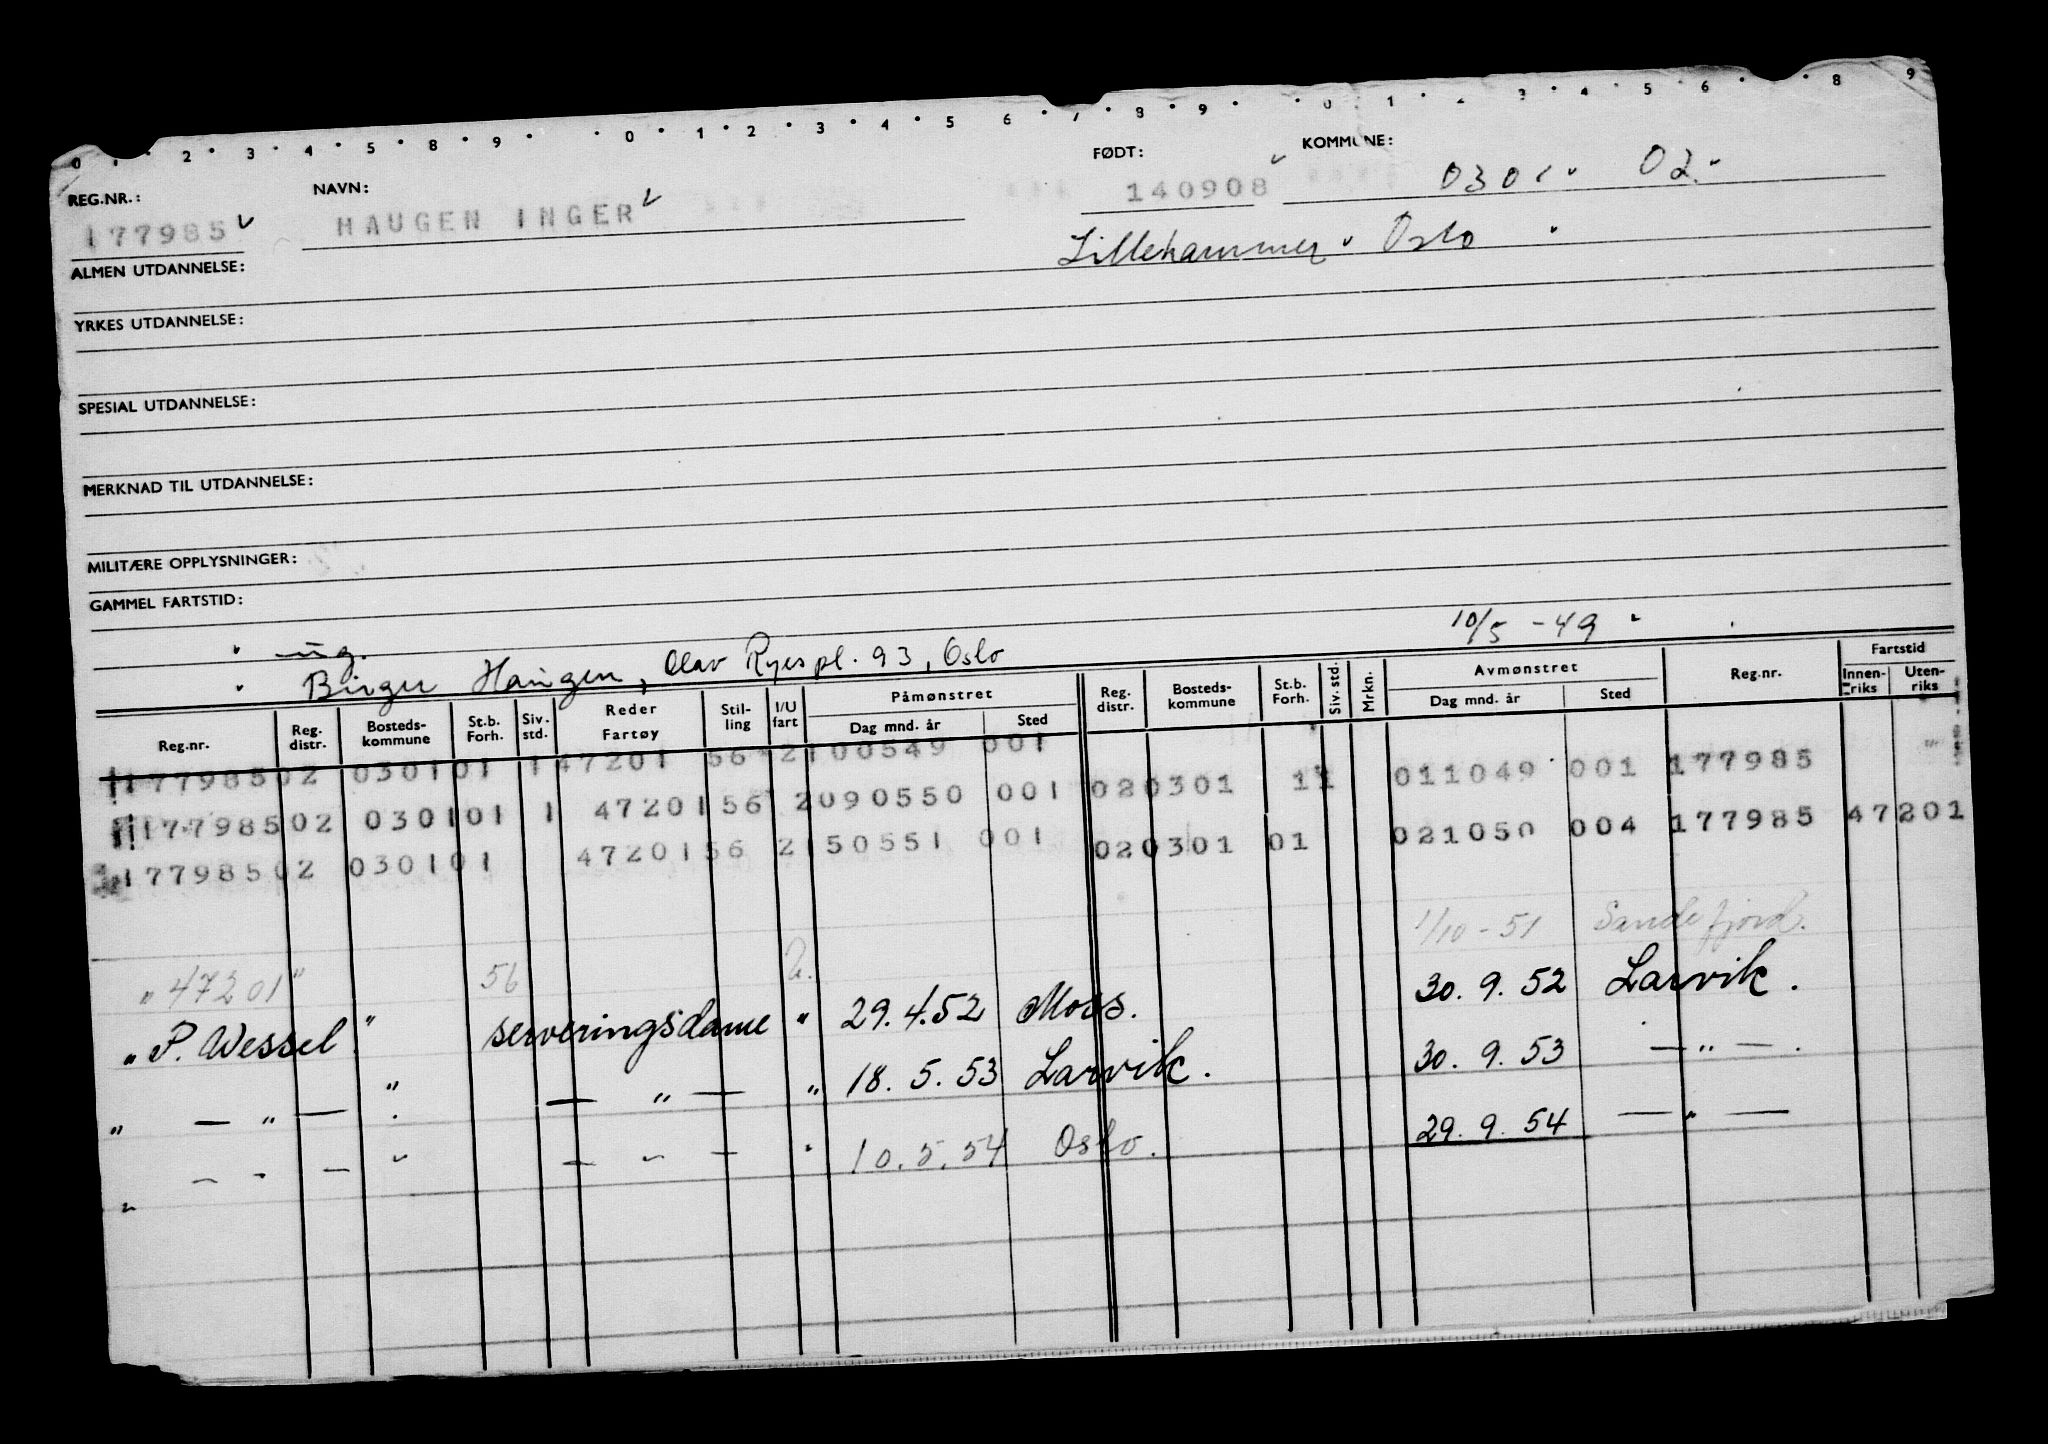 0 . . 2 . 3 . 4 . 5 . 8 . 9 . . 0 . 1 . 2 . 3 . 4 . 5 6 . 7 . 8 . 9 . . 0 1 . 2 3 . 4 . 5 6 . . 8 9
REG.NR.: NAVN: FØDT: KOMMUNE:
177985 HAUGEN INGER 140908 0301. 02.
Lillehammer. Oslo
ALMEN UTDANNELSE:
YRKES UTDANNELSE:
SPESIAL UTDANNELSE:
MERKNAD TIL UTDANNELSE:
MILITÆRE OPPLYSNINGER:
GAMMEL FARTSTID:
ug. 10/5 - 49
Birger Haugen, Olav Ryespl. 93, Oslo
Reg.nr. Reg. distr. Bosteds-kommune St.b. Forh. Siv. std. Reder Fartøy Stil-ling I/U fart Påmønstret Dag mnd. år Sted Reg. distr. Bosteds-kommune St.b. Forh. Siv. std. Mrkn. Avmønstret Dag mnd. år Sted Reg.nr. Fartstid Innen-riks Uten-riks
177985 02 0301 01 1 47201 56 2 100549 001 02 0301 11 011049 001 177985
177985 02 0301 01 1 47201 56 2 090550 001 02 0301 01 021050 004 177985 47201
177985 02 0301 01 47201 56 2 150551 001
1/10 - 51 Sandefjord.
" 47201" 56 U. 30. 9. 52 Larvik.
" P. Wessel " serveringsdame " 29.4.52 Moss. 30. 9. 53 — " — .
" — " — " — " — " 18. 5. 53 Larvik. 29. 9. 54 — " —
" — " — " — " — " 10.5.54 Oslo.